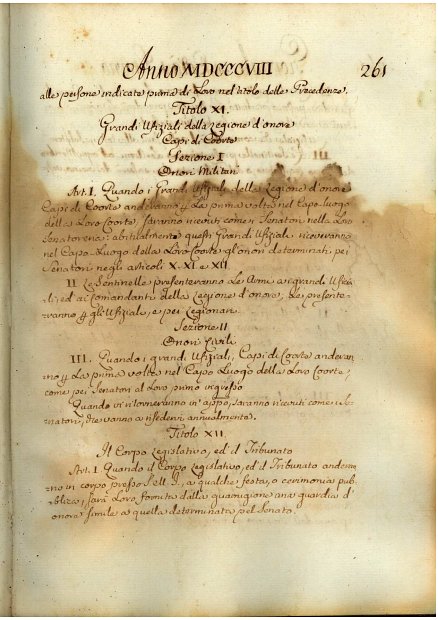 Anno MDCCCVIII
261
alle persone indicate prima di Loro nel titolo delle Precedenze.
Titolo XI.
Grandi Ufiziali della Legione d'onore
Capi di Coorte
Sezione I
Onori Militari
Art. I. Quando i Grandi Ufiziali della Legione d'onore
Capi di Coorte anderanno p La prima volta nel Capo luogo
della Loro Coorte, saranno ricevuti come i Senatori nella Loro
Senatoreria: abitualmente questi Grandi Ufiziali riceveranno
nel Capo Luogo della Loro Coorte gli onori determinati pei
Senatori negli articoli X. XI. e XII.
II Le Sentinelle presenteranno Le Armi ai grandi Ufizia
li, ed ai Comandanti della Legione d'onore; Le presente
ranno p gli Ufiziali, e pei Legionari.
Sezione II
Onori Civili
III. Quando i grandi Ufiziali, Capi di Coorte anderan
no p La prima volta nel Capo Luogo della Loro Coorte,
come pei Senatori al Loro primo ingresso
Quando vi ritorneranno in appo, saranno ricevuti come i Se
natori, che vanno a risedervi annualmente.
Titolo XII.
Il Corpo Legislativo, ed il Tribunato
Art. I. Quando il Corpo Legislativo, ed il Tribunato anderan
no in corpo presso S. M. I., a qualche festa, o cerimonia pub
blica, sarà Loro fornita dalla guarnigione una guardia d'
onore simile a quella determinata pel Senato.